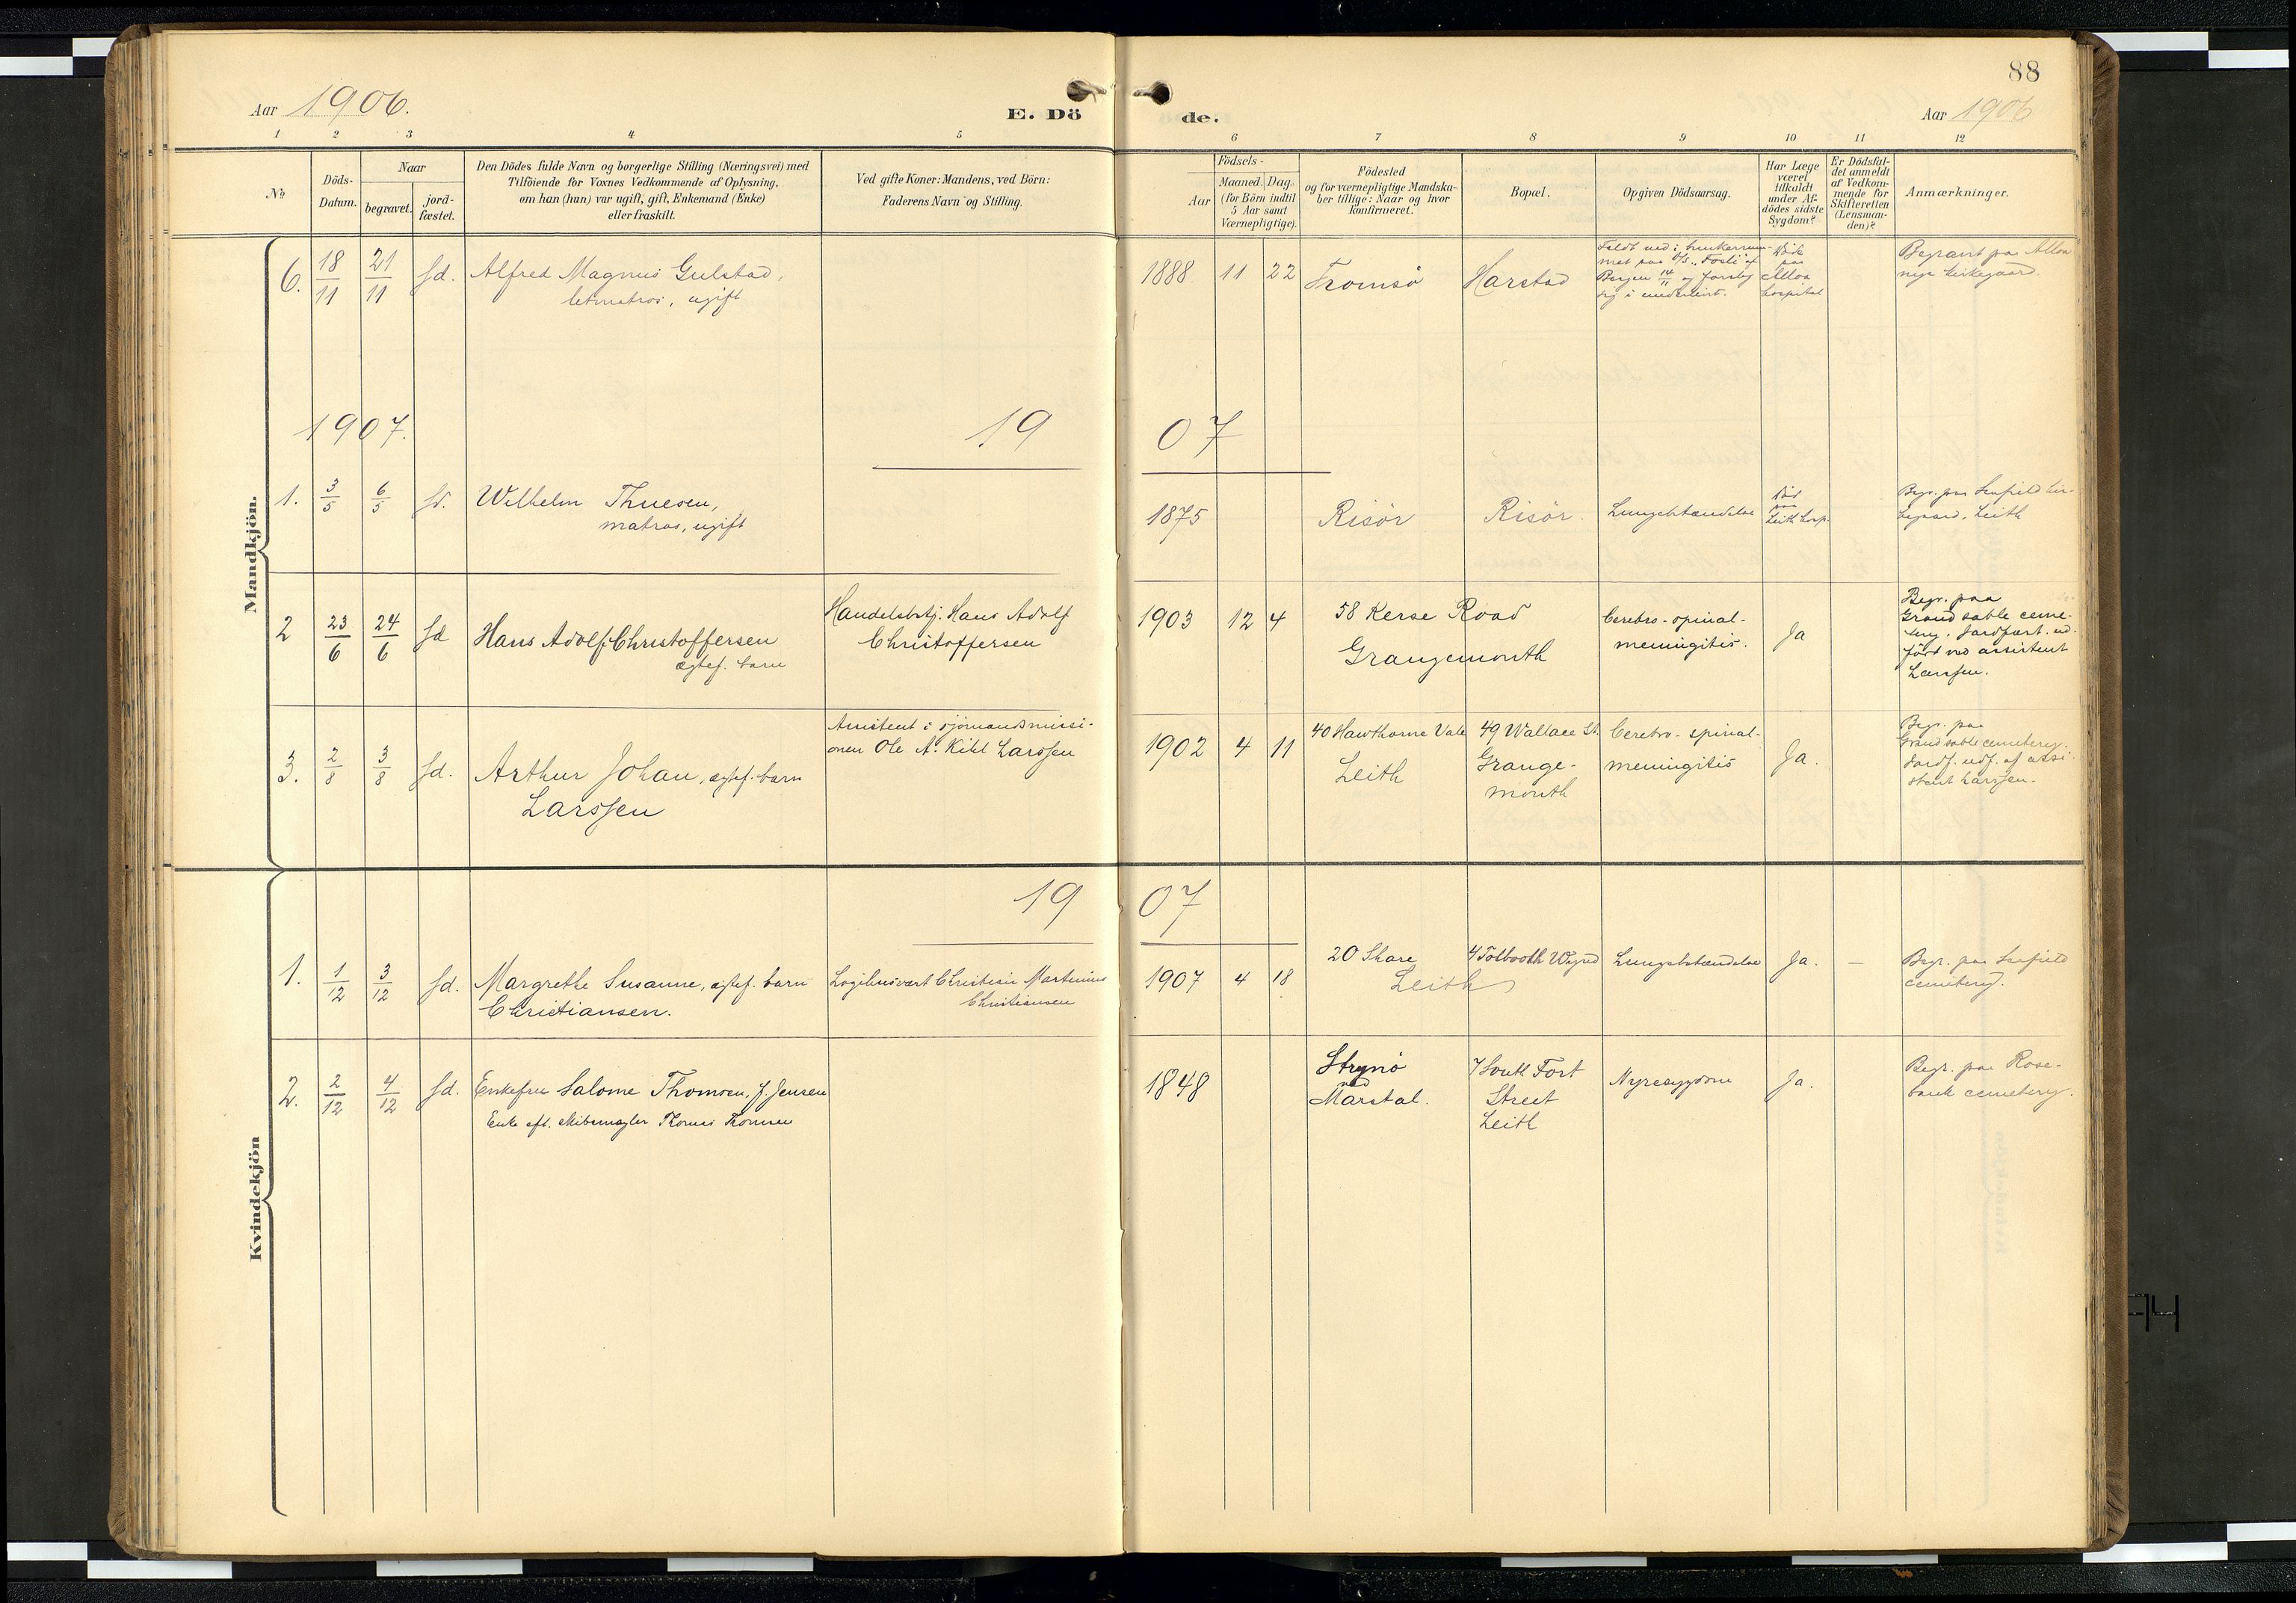 88
Aar 1906.
E. Dö
de.
Aar 1906
1 2 3 4 5 6 7 8 9 10 11 12
No
Döds-
Datum.
Naar
begravet.
jord-
fæstet.
Den Dödes fulde Navn og borgerlige Stilling (Næringsvei) med
Tilföiende for Voxnes Vedkommende af Oplysning,
om han (hun) var ugift, gift, Enkemand (Enke)
eller fraskilt.
Ved gifte Koner: Mandens, ved Börn:
Faderens Navn og Stilling.
Födsels-
Aar
Maaned. Dag.
(for Börn indtil
5 Aar samt
Værnepligtige).
Födested
og for værnepligtige Mandska-
ber tillige: Naar og hvor
konfirmeret.
Bopæl.
Opgiven Dödsaarsag.
Har Læge
været
tilkaldt
under Af-
dödes sidste
Sygdom?
Er Dödsfal-
det anmeldt
af Vedkom-
mende for
Skifteretten
(Lensman-
den)?
Anmærkninger.
Mandkjön.
6. 18/11 21/11 Jd. Alfred Magnus Gulstad,
letmatros, ugift
1888 11 22 Tromsø Harstad
Faldt ned i
met paa D/S. "Fosli" af
Bergen 14/11 og forslog
sig i underlivet.
Døde
paa
Alloa
hospital
Begravet paa Alloa
nye kirkegaard.
1907. 1907
1. 3/5 6/5 Jd. Wilhelm Thuesen,
matros, ugift
1875 Risör Risör. Lungebetændelse
Död
paa
Leith Hosp.
Begr. paa Seafield kir-
kegaard, Leith
2 23/6 24/6 Jd Hans Adolf Christoffersen
ægtef. barn
Handelsbetj. Hans Adolf
Christoffersen
1903 12 4 58 Kerse Road
Grangemouth
Cerebro-spinal-
meningitis.
Ja
Begr. paa
Grandsable ceme-
tery. Jordfæst. ud-
ført ved assistent
Larssen.
3. 2/8 3/8 Jd. Arthur Johan, ægtef. barn
Larssen
Assistent i sjömandsmissi-
onen Ole A. Kihl Larssen
1902 4 11 40 Hawthorne Vale
Leith
49 Wallace St.
Grange-
mouth
Cerebro-spinal-
meningitis
Ja.
Begr. paa
Grandsable cemetery.
Jordf. udf. af assi-
stent Larssen.
Kvindekjön
1907
1. 1/12 3/12 Jd. Margrethe Susanne, ægtef. barn
Christiansen.
Logihusvært Christian Martinius
Christiansen
1907 4 18 20 Shore 4 Tolbooth Wynd
Leith
Lungebetændelse Ja. —
Begr. paa Seafield
cemetery.
2. 2/12 4/12 Jd. Enkefru Salome Thomsen, f. Jensen
Enke eft. skibsmægler Thomas Thomsen
1848 Strynö
ved
Marstal.
7 South Fort
Street
Leith
Nyresygdom Ja.
Begr. paa Rose-
bank cemetery.